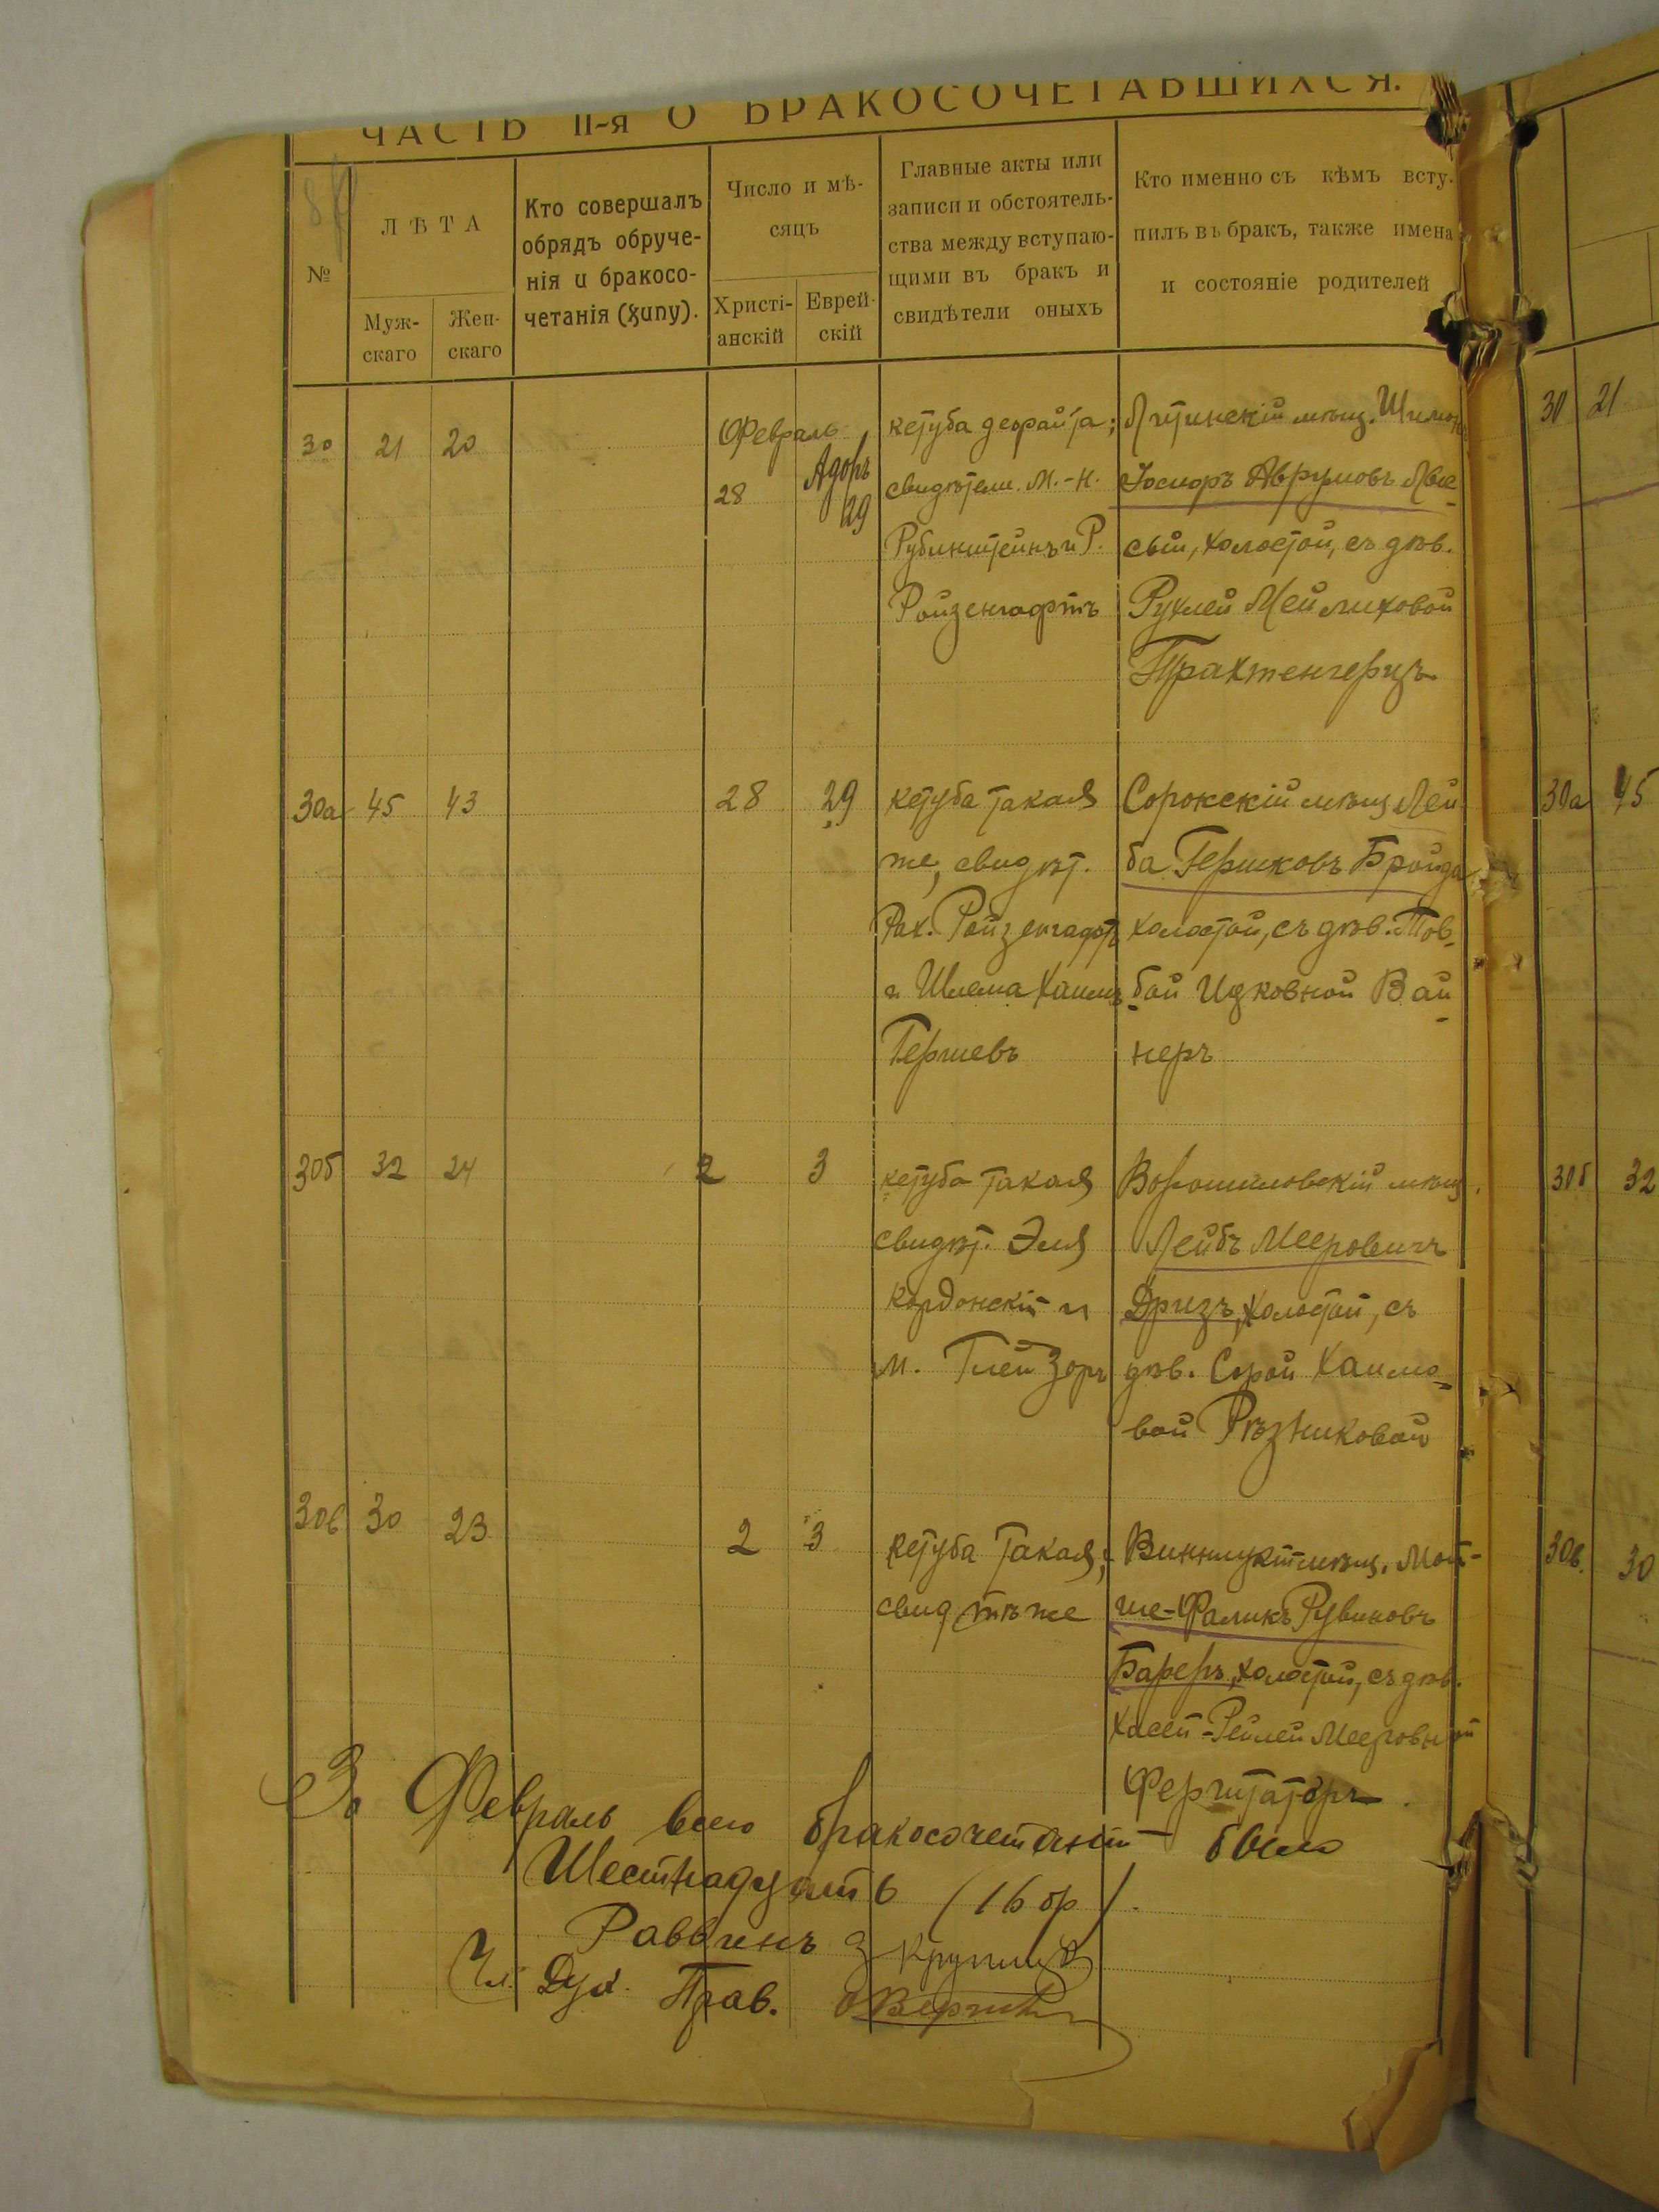 ЧАСТЬ II-я О БРАКОСОЧЕТАВШИХСЯ.
№
ЛѢТА
Муж-
скаго
Жен-
скаго
Кто совершалъ
обрядъ обруче-
нія и бракосо-
четанія (хипу).
Число и мѣ-
сяцъ
Христі-
анскій
Еврей-
скій
Главные акты или
записи и обстоятель-
ства между вступаю-
щими въ бракъ и
свидѣтели оныхъ
Кто именно съ кѣмъ всту-
пилъ въ бракъ, также имена
и состояніе родителей
30 21 20
Февраль
28
Адоръ
29
кетуба деорайта;
свидѣтели М.-Н.
Рубинштейнъ и Р.
Ройзенгафтъ
Литинскій мѣщ. Шимон
Іосифъ Аврумовъ
сый, холостой, съ дѣв.
Рухлей Мейлиховой
Трахтенгерцъ
30а 45 43
28 29
кетуба такая
же, свидѣт.
Рах. Ройзенгафтъ
и Шлема Хаимъ
Гершевъ
Сорокскій мѣщ Лей
ба Гершковъ Бройда
холостой, съ дѣв. Тов-
бой Ицковной Вай-
неръ
30б 32 24
2 3
кетуба такая
свидѣт. Эля
Кордонскій и
М. Глейзеръ
Ворошиловскій мѣщ.
Лейбъ Мееровичъ
Дризъ, холостой, съ
дѣв. Сурой Хаимо-
вой Рѣзниковой
30в 30 23
2 3
кетуба такая;
свид тѣ же
Винницкій мѣщ. Мой-
ше-Фаликъ Рувиновъ
Бареръ, холостой, съ дѣв.
Хасей-Рейлей Мееровной
За Февраль всего бракосочетаній было
Шестнадцать (16 бр).
Раввинъ З Крупник
Чл. Дух. Прав.
30 21
30а 45
30б 32
30в. 30